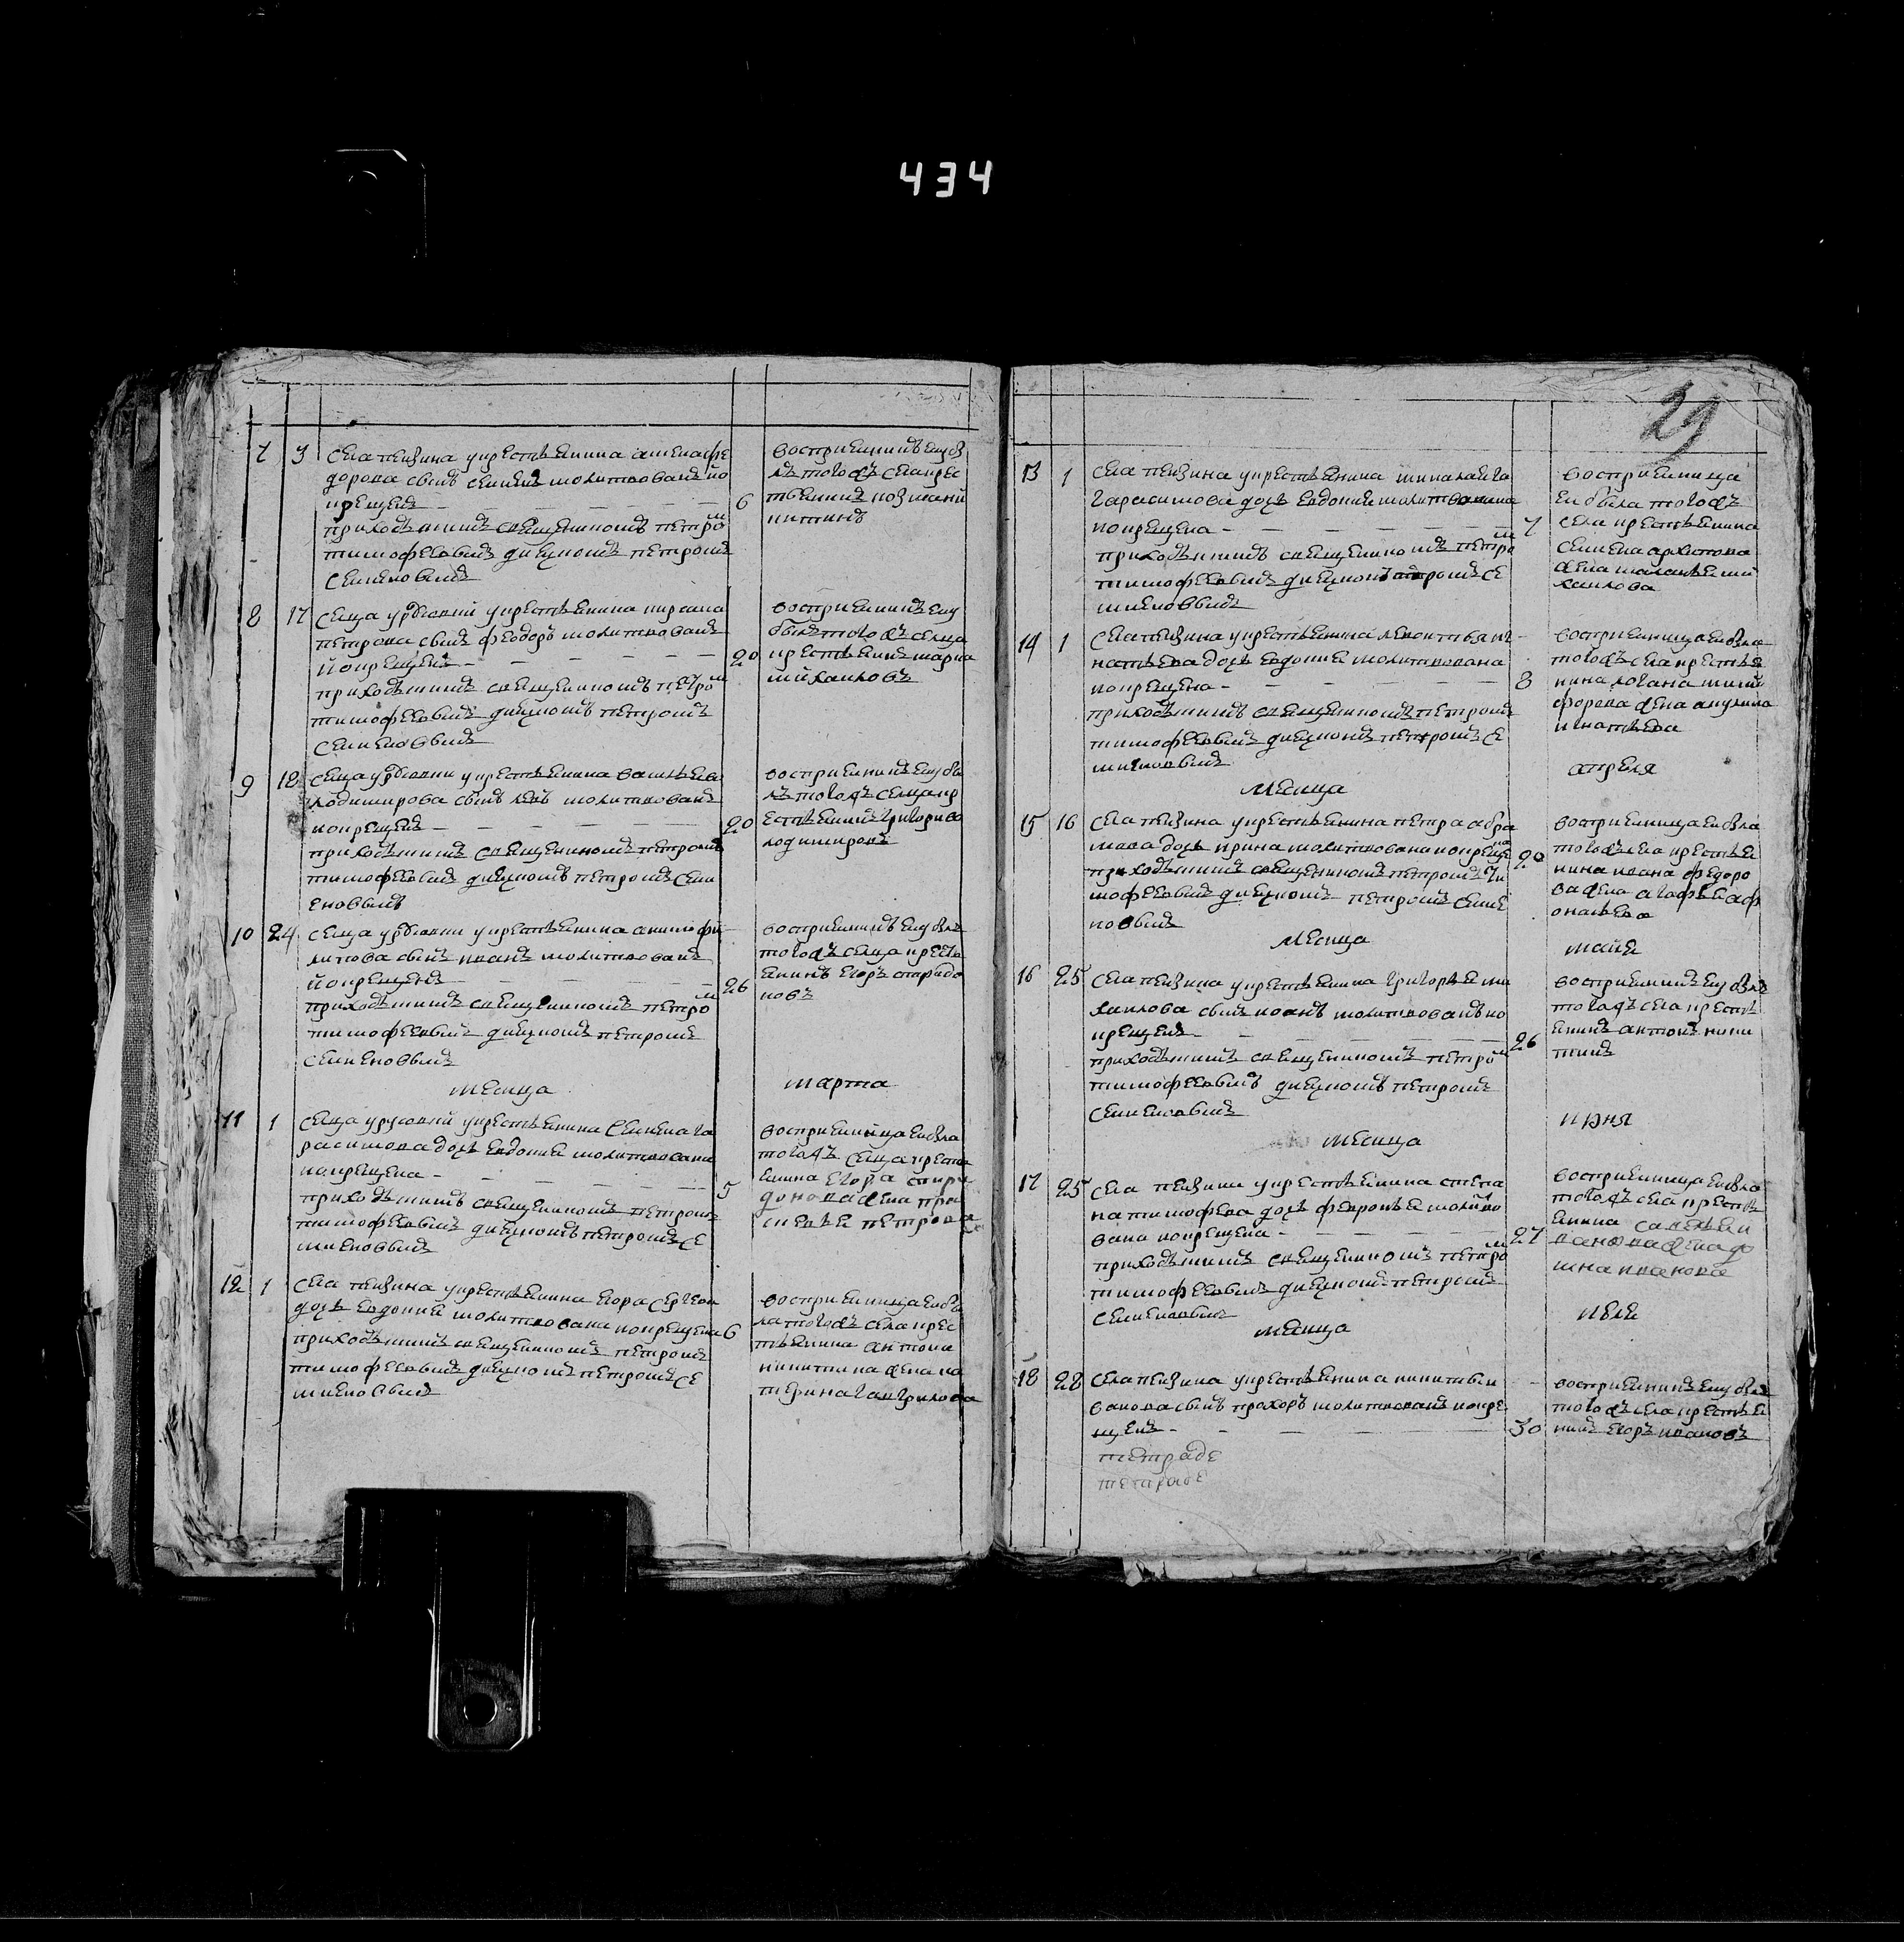 434
29
7 3 села пензина укрестьянина степана фе
дорова сынъ семенъ молитвованъ ико
крещенъ 6
приходскимъ священникомъ петромъ
тимофеевымъ диячкомъ петромъ
семеновымъ
восприемникъ ему бы
лъ тогожъ села крес
тьянинъ козма ни
китинъ
8 17 селца укрестьянина кирила
петрова сынъ феодоръ молитвованъ
икокрещенъ 20
приходскимъ священникомъ петромъ
тимофеевымъ диячкомъ петромъ
семеновымъ
восприемникъ ему
былъ тогожъ селца
крестьянинъ марка
михаиловъ
9 18 селца укрестьянина василья во
лодимирова сынъ левъ молитвованъ
икокрещенъ 20
приходскимъ священникомъ петромъ
тимофеевымъ диячкомъ петромъ сем
еновымъ
восприемникъ ему бы
лъ тогожъ селца кр
естьянинъ григори во
лодимировъ
10 24 селца укрестьянина анима фи
липова сынъ иванъ молитвованъ
икокрещенъ 26
приходскимъ священникомъ петромъ
тимофеевымъ диячкомъ петромъ
семеновымъ
восприемникъ ему былъ
тогожъ селца кресть
янинъ егоръ спиридо
новъ
месица марта
11 1 селца укрестьянина семена га
расимова дочь евдокия молитвована
икокрещена 5
приходскимъ священникомъ петромъ
тимофеевымъ диячкомъ петромъ се
меновымъ
восприемница ей была
тогожъ селца кресть
янина егора спири
донова жена
петрова
12 1 села пензина укрестьянина егора сергеева
дочь евдокия молитвована икокрещена 6
приходскимъ священникомъ петромъ
тимофеевымъ диячкомъ петромъ се
меновымъ
восприемница ей бы
ла тогожъ села крес
тьянина антона
никитина жена ка
терина гаврилова
13 1 села пензина укрестьянина николая га
гарасимова дочь евдокия молитвована
икокрещена 7
приходскимъ священникомъ петромъ
тимофеевымъ диячкомъ петромъ се
меновымъ
восприемница
ей была тогожъ
села крестьянина
семена архипова
жена маланья ми
хаилова
14 1 села пензина укрестьянина леонтья иг
натьева дочь евдокия молитвована
икокрещена 8
приходскимъ священникомъ петромъ
тимофеевымъ диячкомъ петромъ се
меновымъ
восприемница ей была
тогожъ села крестья
нина ники
форова жена акулина
игнатьева
месица апреля
15 16 села пензина укрестьянина петра абра
мова дочь ирина молитвована икокреще 20
приходскимъ священникомъ петромъ ти
мофеевымъ диячкомъ петромъ семе
новымъ
восприемница ей была
тогожъ села крестья
нина ивана федоро
ва жена агафья аф
онасьева
месица майя
16 25 села пензина укрестьянина григорья ми
хаилова сынъ иоанъ молитвованъ ико
крещенъ 26
приходскимъ священникомъ петромъ
тимофеевымъ диячкомъ петромъ
семеновымъ
восприемникъ ему былъ
тогожъ села кресть
янинъ антонъ ники
тинъ
месица июня
17 25 села пензина укрестьянина степа
на тимофеева дочь февронья молитво
вана икокрещена 27
приходскимъ священникомъ петромъ
тимофеевымъ диячкомъ петромъ
семеновымъ
восприемница ей была
тогожъ села кресть
янина савелья и
ванова жена до
мна иванова
месица июля
18 28 села пензина укрестьянина никиты и
ванова сынъ прохоръ молитвованъ икокре
щенъ 30
восприемникъ ему былъ
тогожъ села крестья
нинъ егоръ ивановъ
тетраде
тетраде